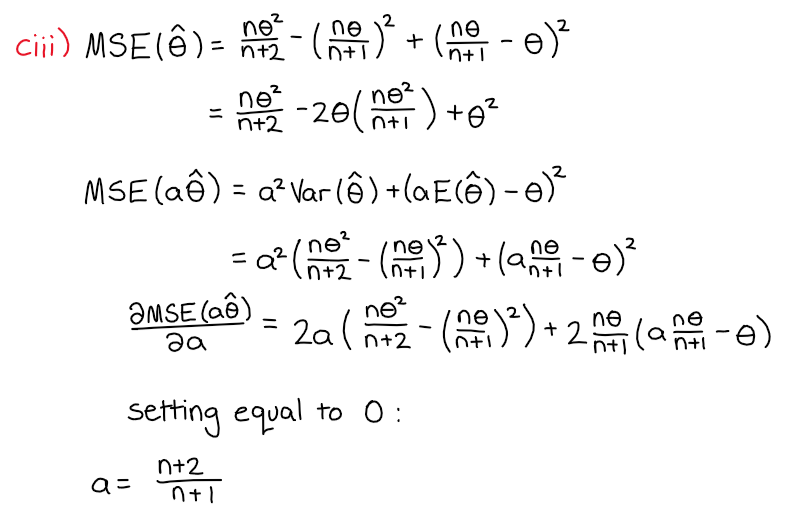 ciii) MSE(θ̂) = nθ²/n+2 - (nθ/n+1)² + (nθ/n+1 - θ)²
= nθ²/n+2 - 2θ(nθ²/n+1) + θ²
MSE(aθ̂) = a² Var(θ̂) + (aE(θ̂) - θ)²
= a²(nθ²/n+2 - (nθ/n+1)²) + (a nθ/n+1 - θ)²
∂MSE(aθ̂)/∂a = 2a(nθ²/n+2 - (nθ/n+1)²) + 2 nθ/n+1 (a nθ/n+1 - θ)
setting equal to 0 :
a = n+2/n+1